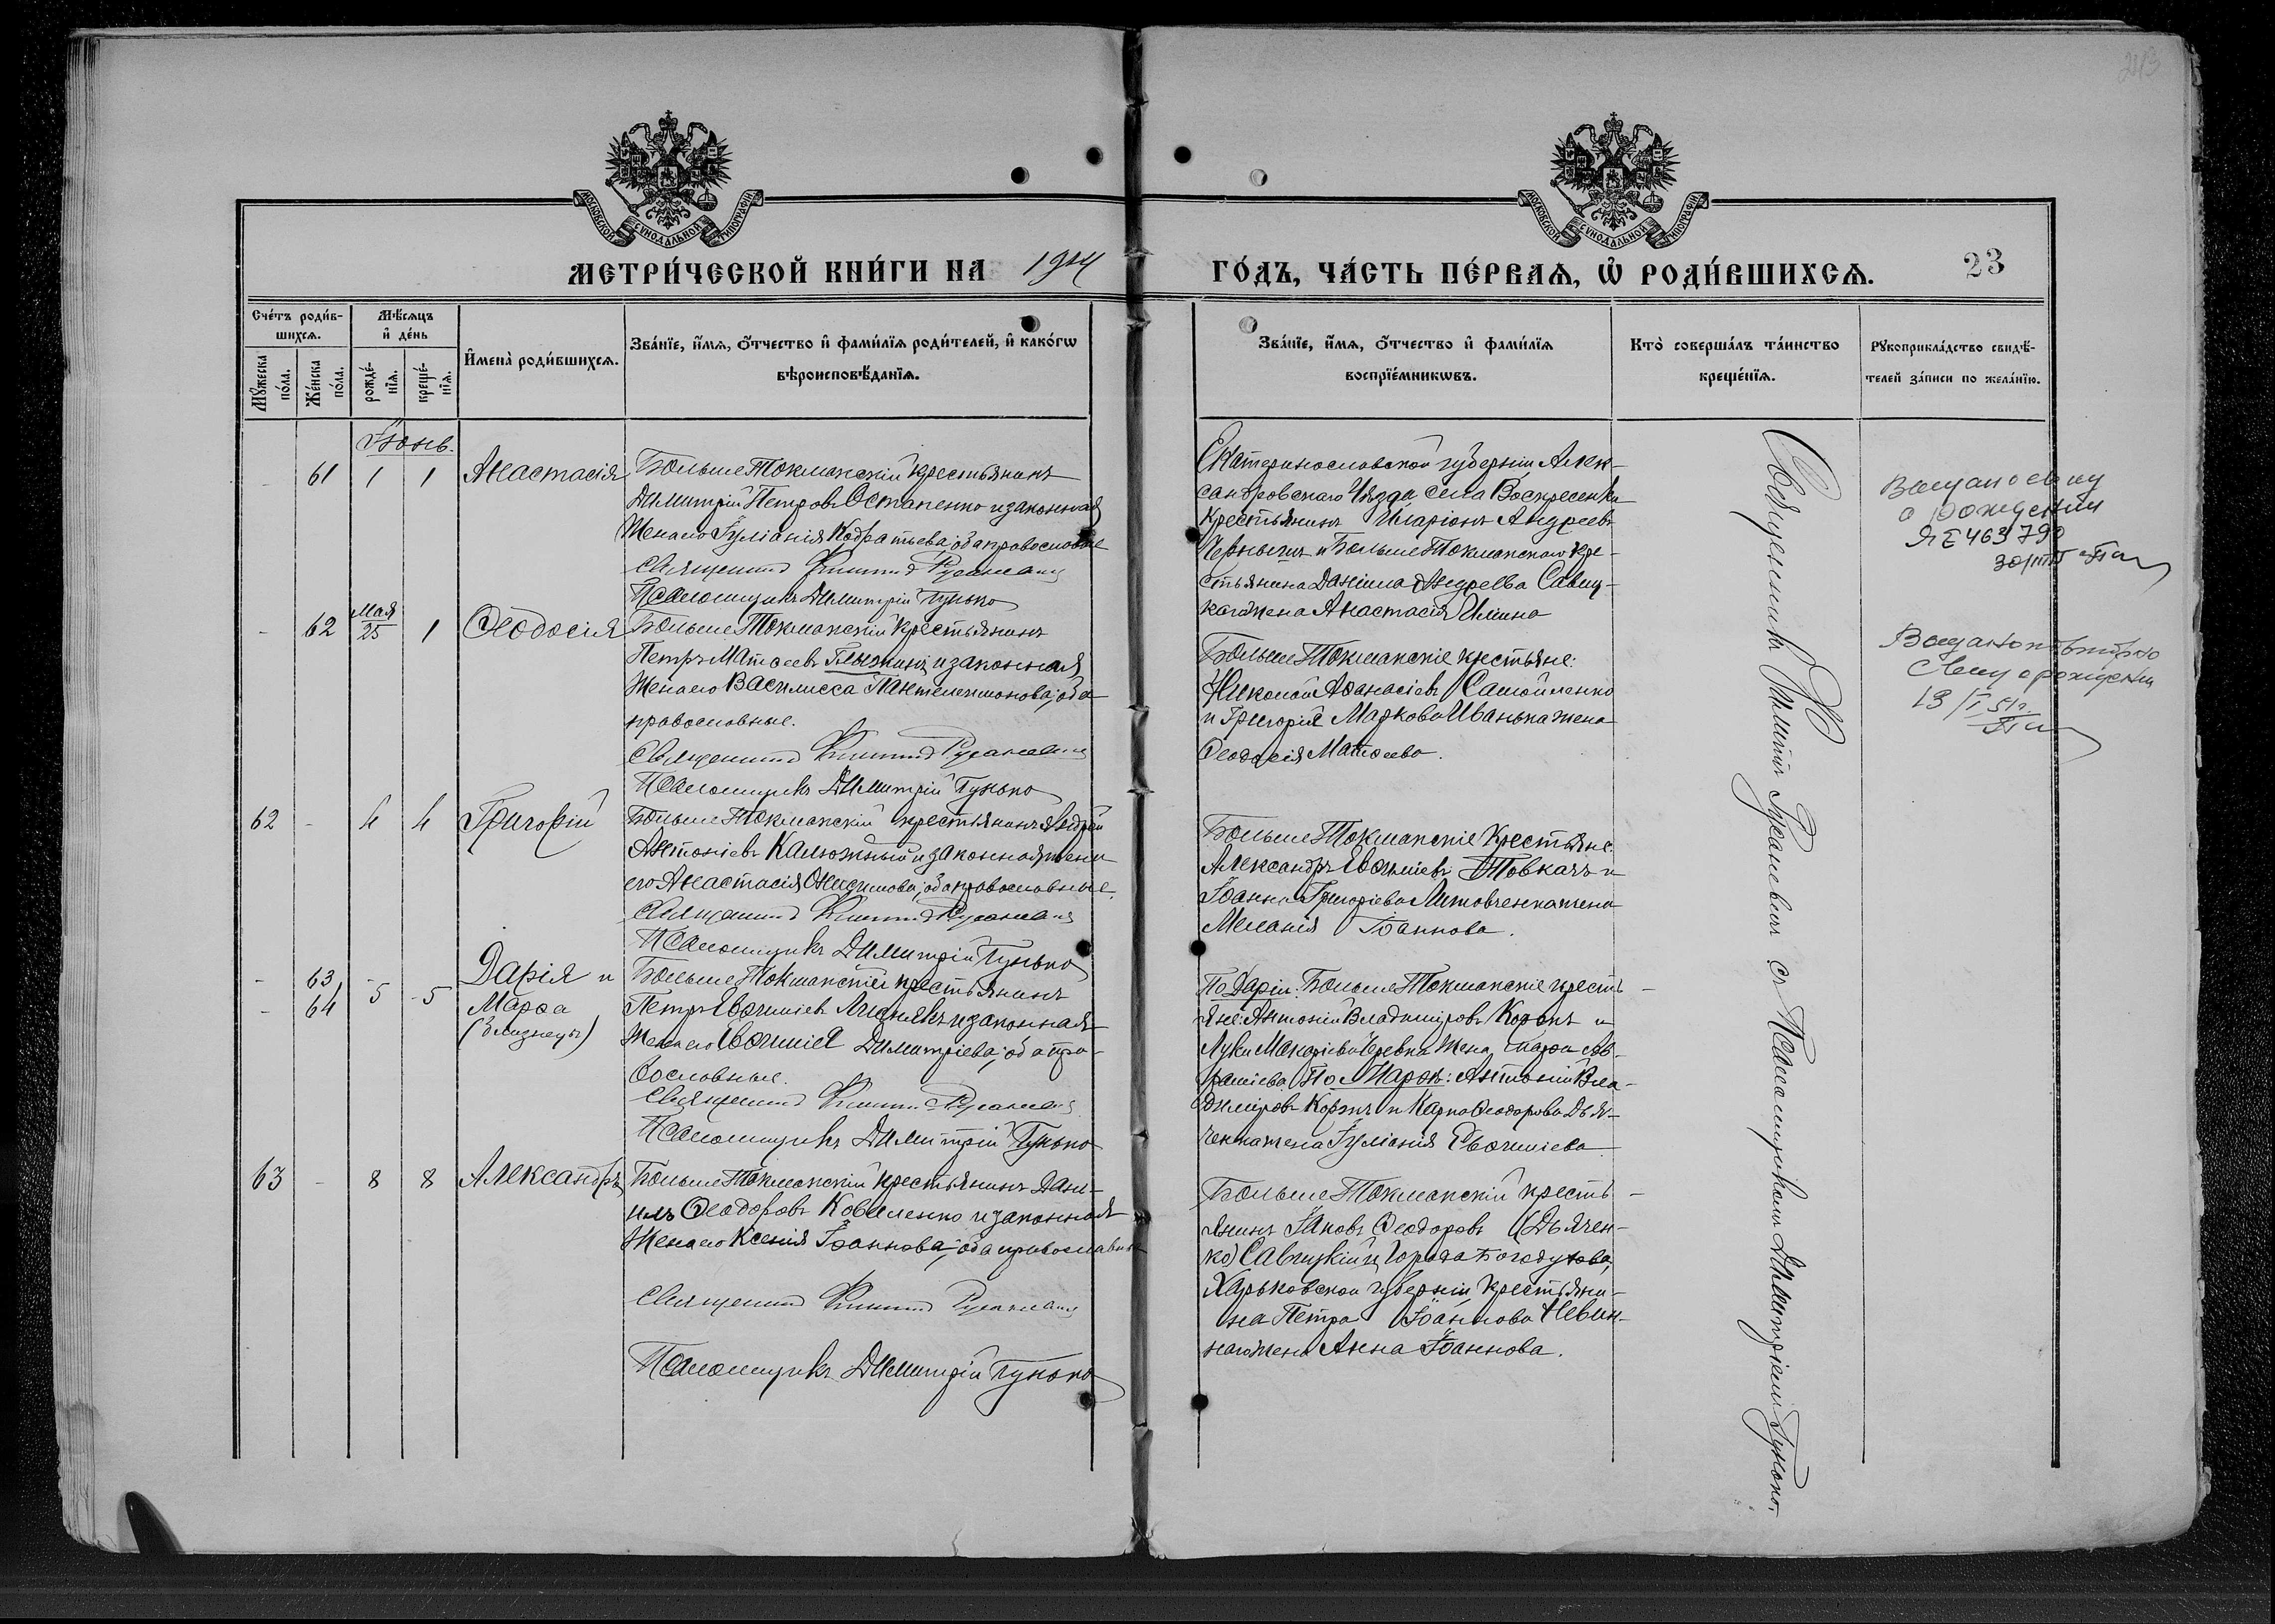 213
МОСКОВСКОЙ СѴНОДАЛЬНОЙ ТИПОГРАФІИ
МОСКОВСКОЙ СѴНОДАЛЬНОЙ ТИПОГРАФІИ
МЕТРИ́ЧЕСКОЙ КНИ́ГИ НА 1914
ГО́ДЪ, ЧА́СТЬ ПЕ́РВАѦ, Ѡ҆ РОДИ́ВШИХСѦ.
23
Сче́тъ роди́в-
шихсѧ.
Мꙋ́жеска
по́ла.
Же́нска
по́ла.
Мѣ́сѧцъ
и҆ де́нь
рожде́-
нїѧ.
креще́-
нїѧ.
И҆мена̀ роди́вшихсѧ.
Зва́нїе, и҆́мѧ, ѻ҆́тчество и҆ фами́лїѧ роди́телей, и҆ како́гѡ
вѣроисповѣ́данїѧ.
Зва́нїе, и҆́мѧ, ѻ҆́тчество и҆ фами́лїѧ
воспрїе́мникѡвъ.
Кто̀ соверша́лъ та́инство
креще́нїѧ.
Рꙋкоприкла́дство свидѣ́-
телей за́писи по жела́нїю.
Іюнь.
- 61 1 1 Анастасія
Больше Токмакскій крестьянинъ
Димитрій Петровъ Остапенко и законная
жена его Іуліанія Кодратьева; оба православные
Священникъ Филиппъ Русаневичъ
Псаломщикъ Димитрій Гунько
Екатеринославской губерніи Алек-
сандровскаго Уѣзда села Воскресенки
Крестьянинъ Иларіонъ Андреевъ
и Больше Токмакскаго кре-
стьянина Даніила Андреева Савиц-
каго жена Анастасія
о рождении
ЯЕ 463790
- 62 Мая 25 1 Ѳеодосія
Больше Токмакскій Крестьянинъ
Петръ Матѳеевъ и законная
жена его Василисса Пантелеимонова; оба
православные.
Священникъ Филиппъ Русаневичъ
Псаломщикъ Димитрій Гунько
Больше Токмакскіе крестьяне:
Николай Аѳанасіевъ Самойленко
и Григорія Маркова Иванька жена
Ѳеодосія Матѳеева.
о рождении
13/I 51г.
62 - 4 4 Григорій
Больше Токмакскій крестьянинъ Андрей
Антоніевъ Калюжный и законная жена
его Анастасія Онисимова; оба православные.
Священникъ Филиппъ Русаневичъ
Псаломщикъ Димитрій Гунько
Больше Токмакскіе Крестьяне
Александръ Евѳиміевъ Товкачъ и
Іоанна Григоріева Литовченка жена
Меланія Іоаннова.
- 63, Дарія и
- 64 5 5 Марѳа
(близнецы)
Больше Токмакскій крестьянинъ
Петръ Евѳиміевъ и законная
жена его Евѳимія Димитріева; оба пра-
вославные.
Священникъ Филиппъ Русаневичъ
Псаломщикъ Димитрій Гунько
По Даріи: Больше Токмакскіе кресть-
яне: Антоній Владиміровъ Коржъ и
Луки Макаріева жена Марѳа
По Марѳѣ: Антоній Вла-
диміровъ Коржъ и Карпа Ѳеодорова Дья-
ченка жена Іуліанія Евѳиміева.
63 - 8 8 Александръ
Больше Токмакскій крестьянинъ Дані-
илъ Ѳеодоровъ Коваленко и законная
жена его Ксенія Іоаннова; оба православные
Священникъ Филиппъ Русаневичъ
Псаломщикъ Димитрій Гунько
Больше Токмакскій кресть-
янинъ Іаковъ Ѳеодоровъ (Дьячен-
ко) Савицкій и города Богодухова,
Харьковской губерніи крестьяни-
на Петра Іоаннова Невин-
наго жена Анна Іоаннова.
Священникъ Филиппъ Русаневичъ съ Псаломщикомъ Димитріемъ Гунько.